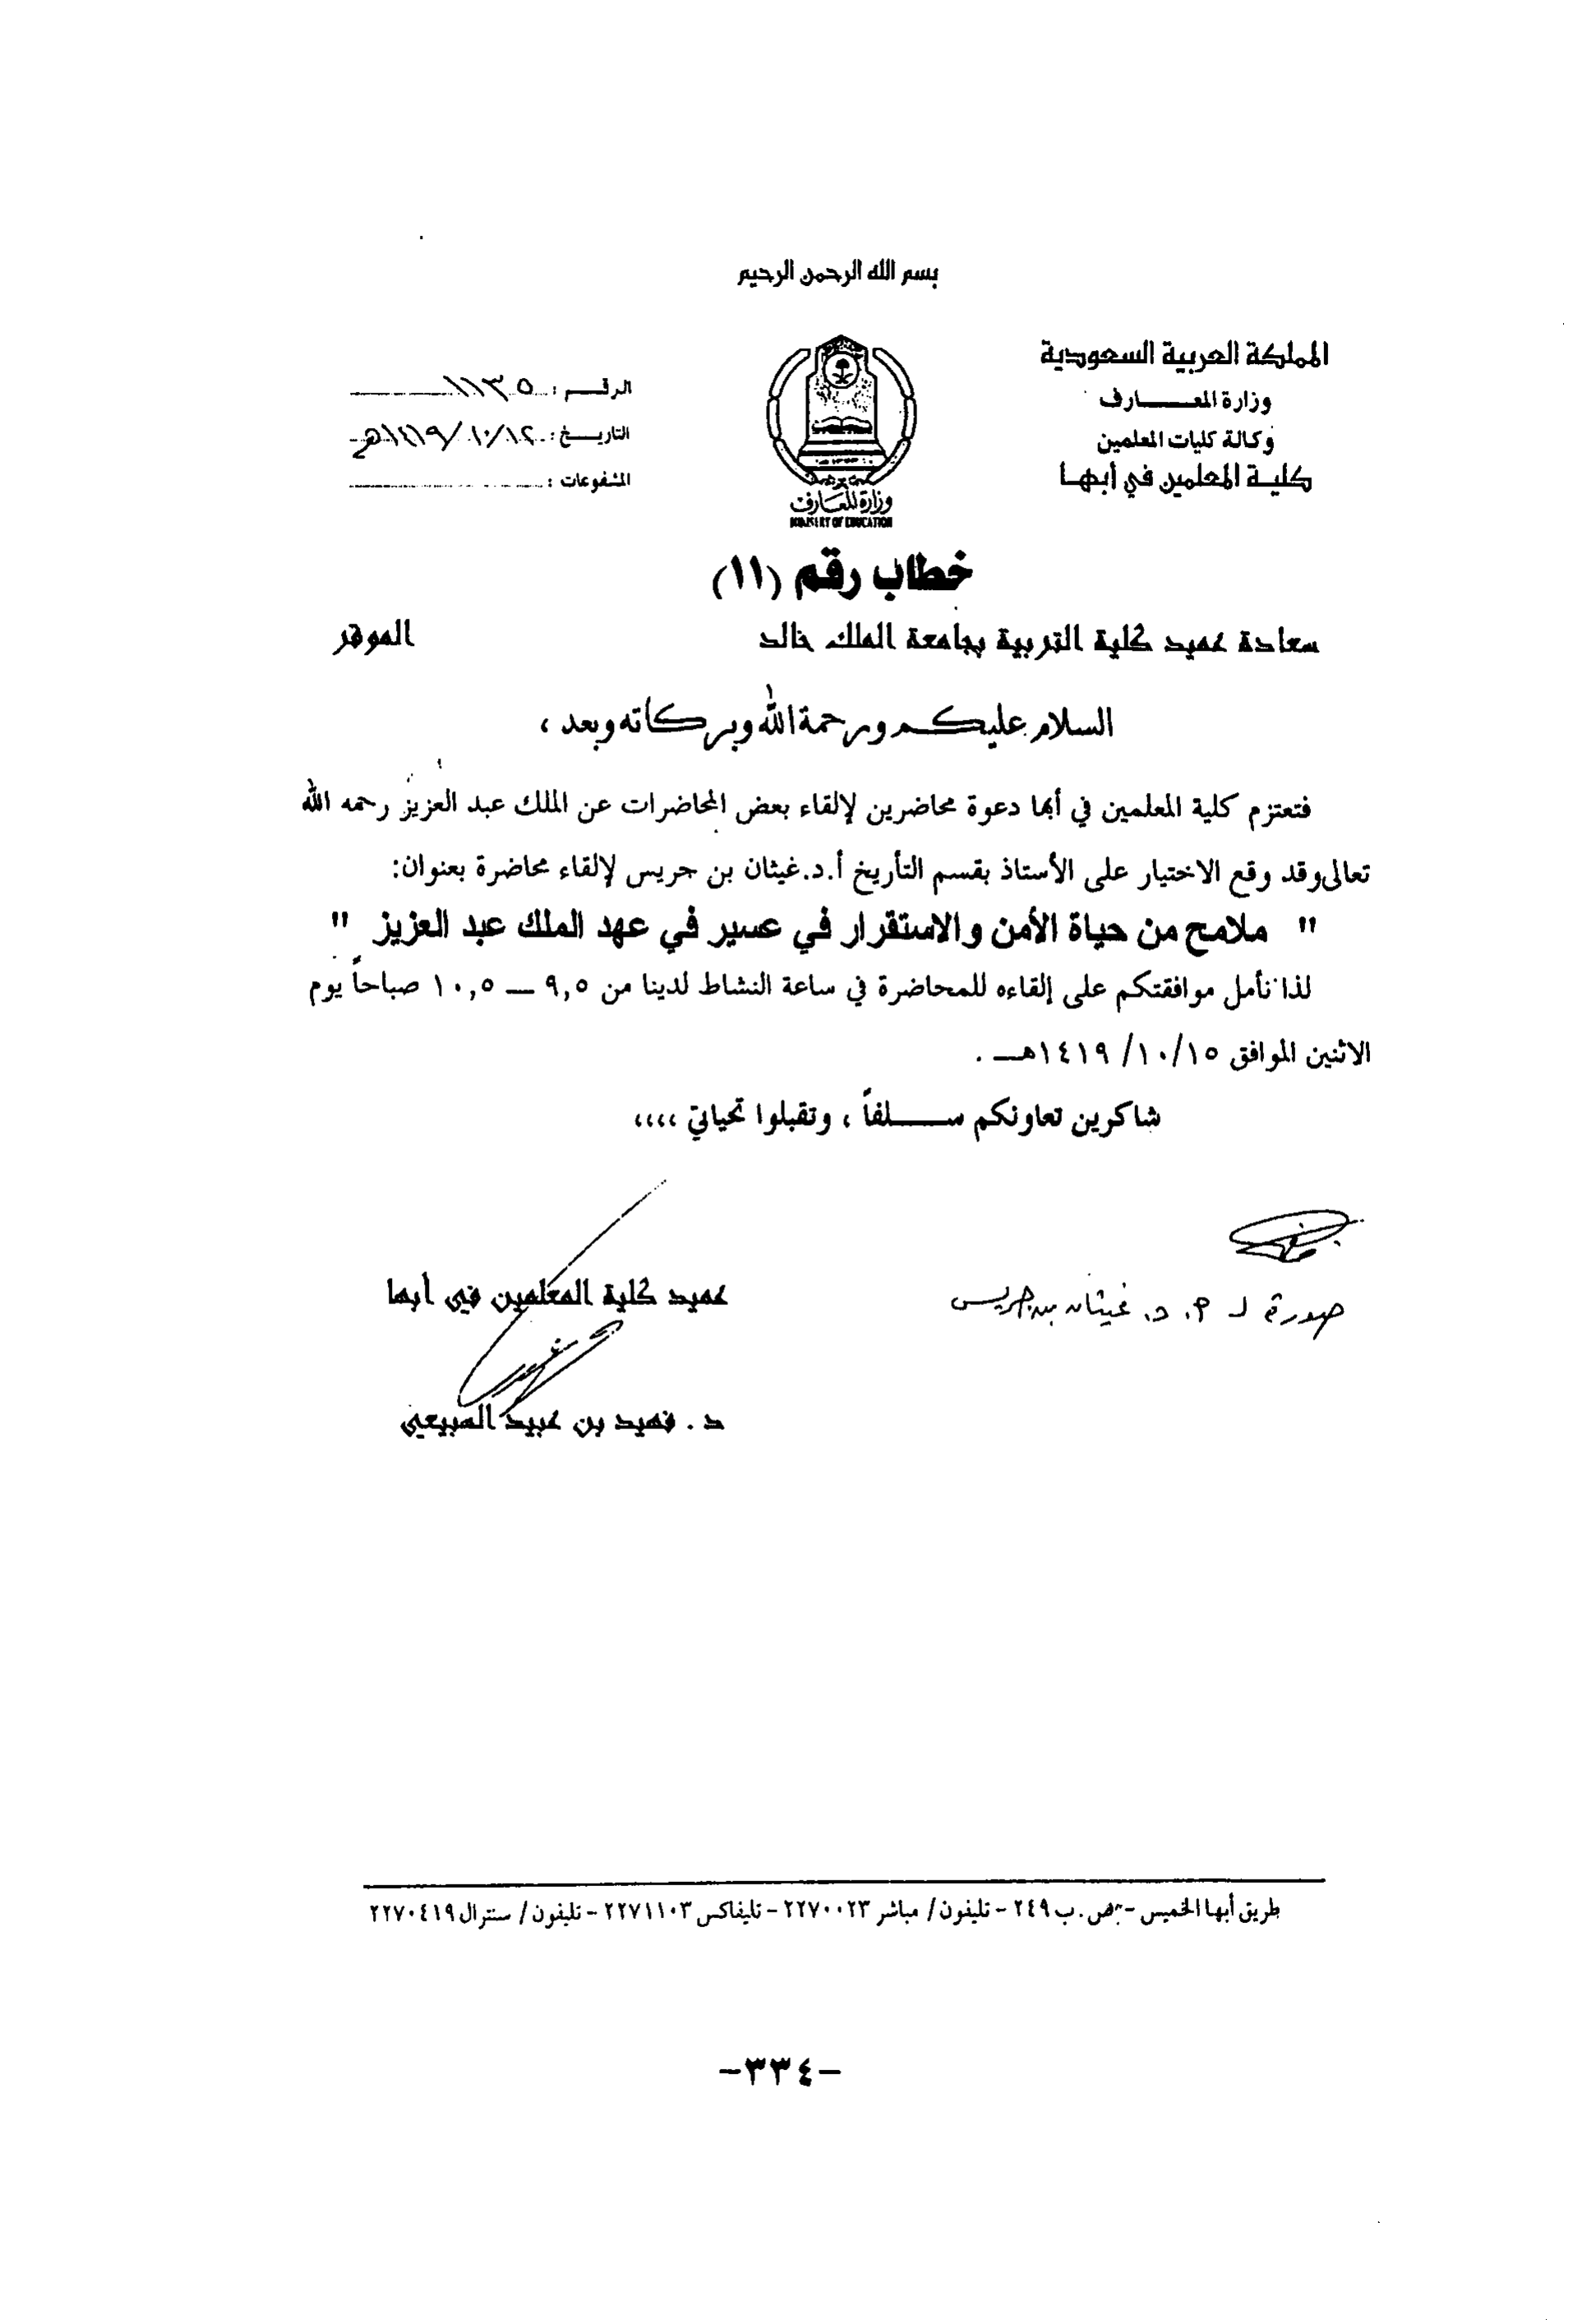 بسم الله الرحمن الرحيم
المملكة العربية السعودية
وزارة المعـــــارف
وكالة كليات المعلمين
كليـة المعلمين في أبهـا
الرقــــم : ١١٣٥
التاريـــخ : ١٤١٩/١٠/١٢هـ
المشفوعات :
وزارة المعارف
MINISTRY OF EDUCATION
خطاب رقم (١١)
سعادة عميد كلية التربية بجامعة الملك خالد الموقر
السلام عليكم ورحمة الله وبركاته وبعد ،
فتعتزم كلية المعلمين في أبها دعوة محاضرين لإلقاء بعض المحاضرات عن الملك عبد العزيز رحمه الله
تعالى وقد وقع الاختيار على الأستاذ بقسم التأريخ أ.د.غيثان بن جريس لإلقاء محاضرة بعنوان:
" ملامح من حياة الأمن والاستقرار في عسير في عهد الملك عبد العزيز "
لذا نأمل موافقتكم على إلقاءه للمحاضرة في ساعة النشاط لدينا من ٩,٥ ـــ ١٠,٥ صباحاً يوم
الاثنين الموافق ١٥/١٠/ ١٤١٩هـــ .
شاكرين تعاونكم ســـــلفاً ، وتقبلوا تحياتي ،،،،
صورة لـ أ. د. غيثان بن جريس
عميد كلية المعلمين في أبها
د . فهيد بن عبيد السبيعي
طريق أبها الخميس - ص . ب ٢٤٩ - تليفون / مباشر ٢٢٧٠٠٢٣ - تليفاكس ٢٢٧١١٠٣ - تليفون / سنترال ٢٢٧٠٤١٩
-٣٣٤-